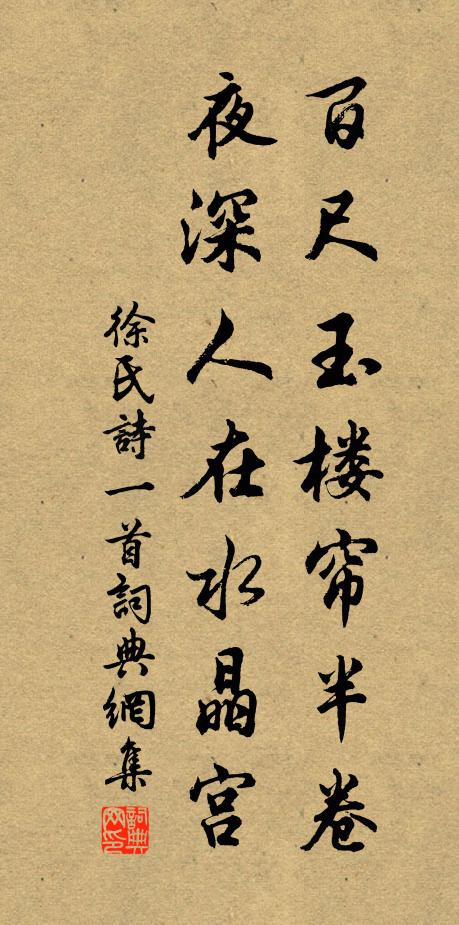 百尺玉楼帘半卷
夜深人在水晶宫
徐氏詩一首詞典網集
詞典网印